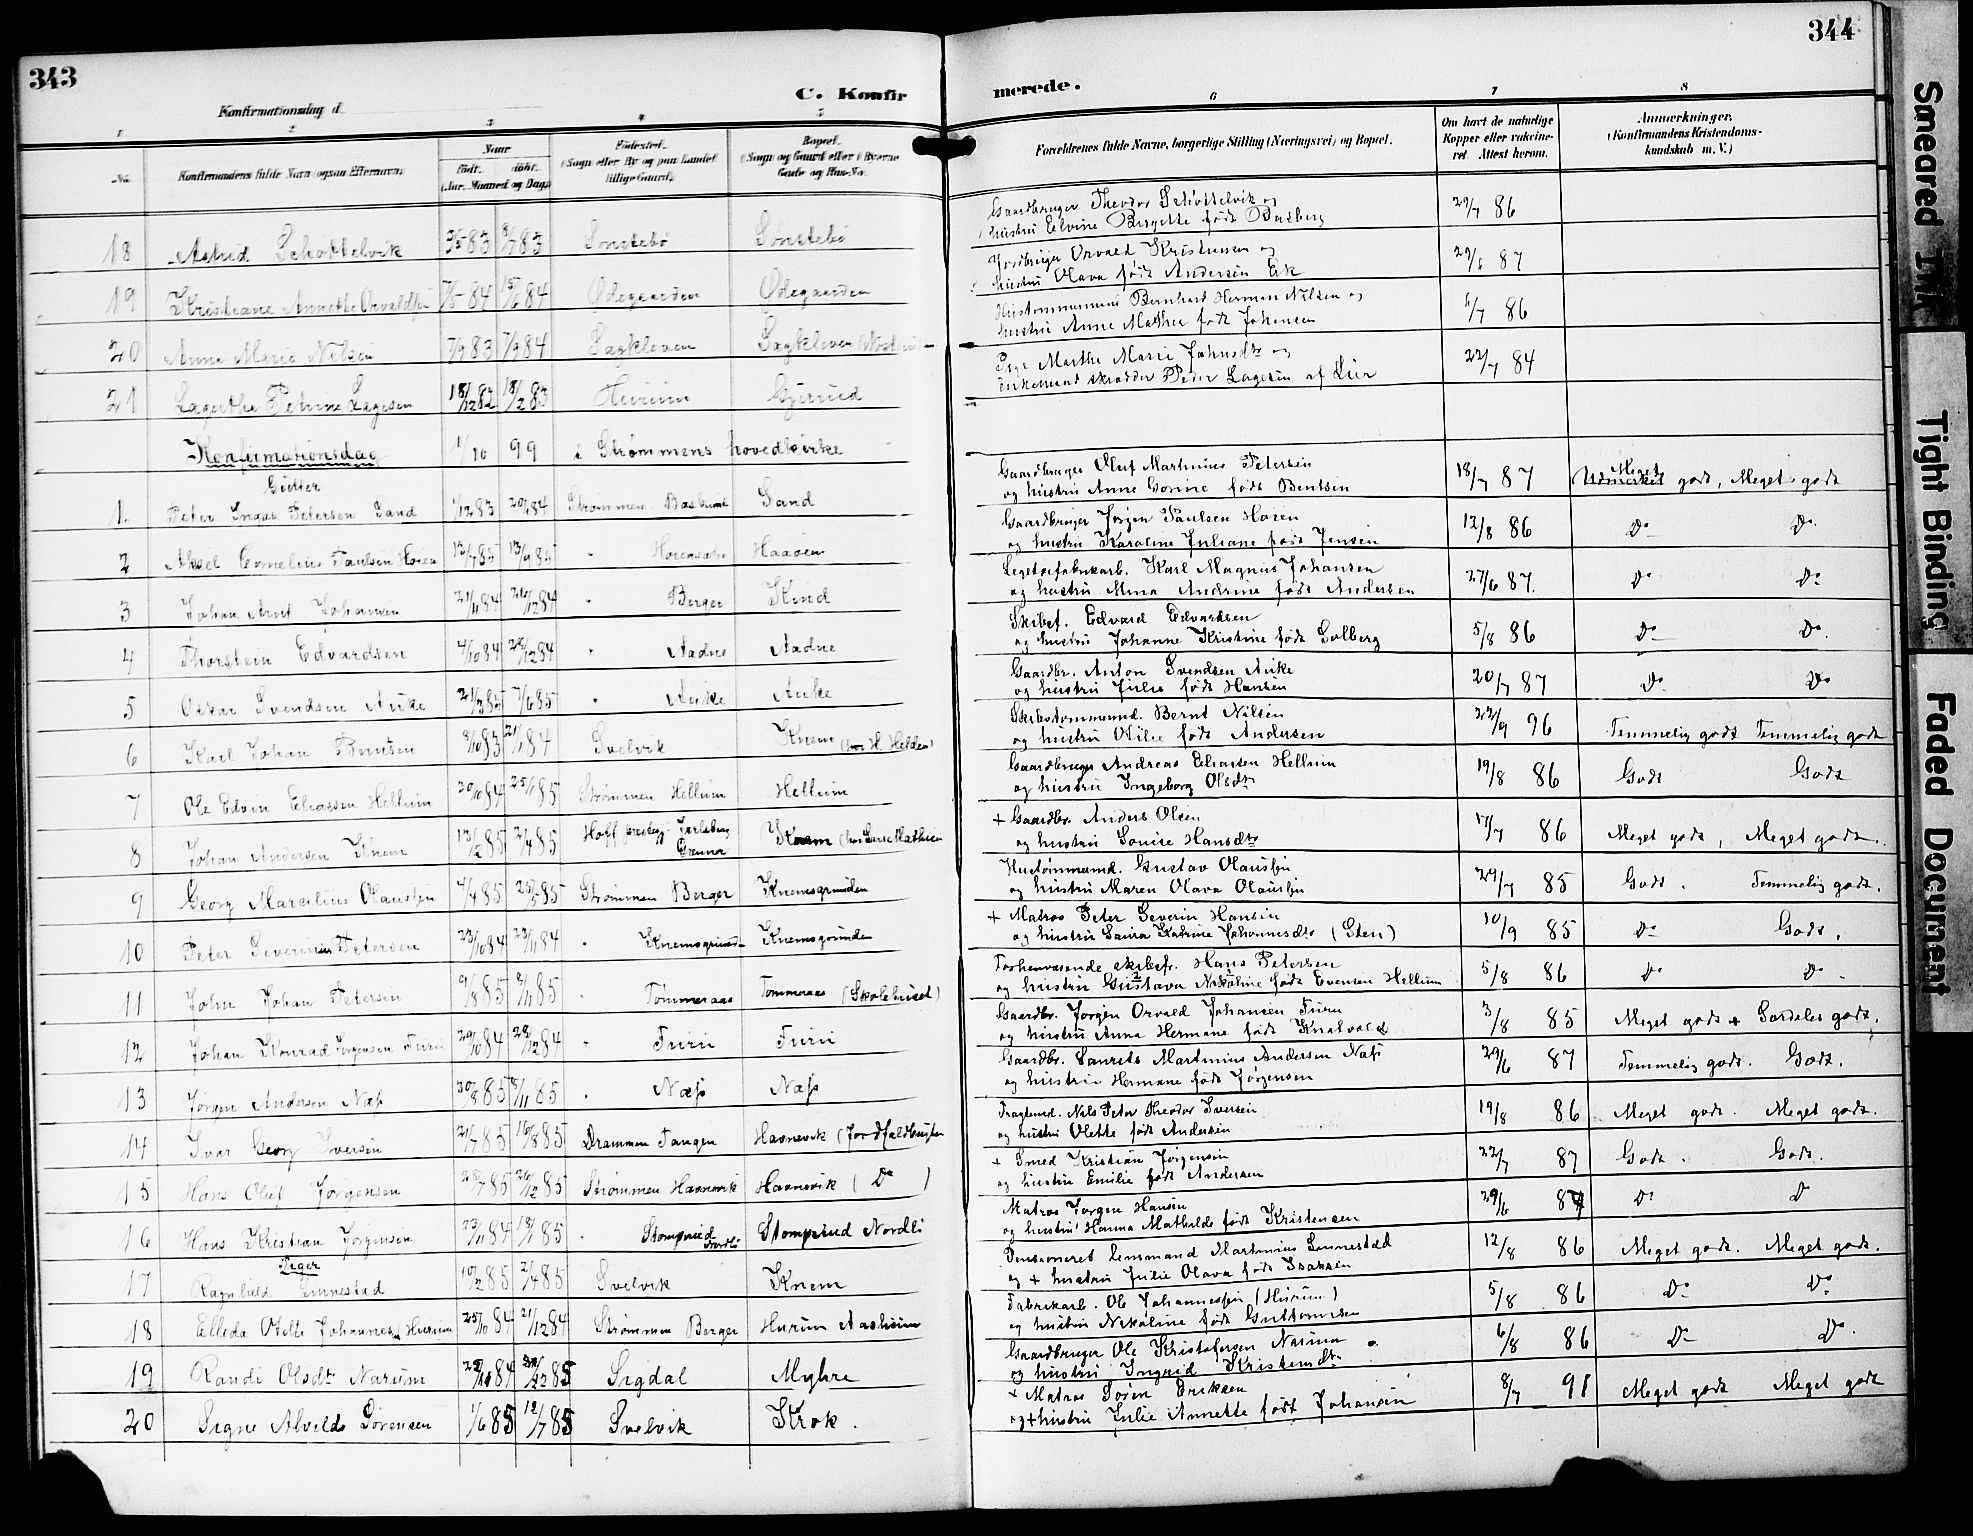 343
C. Konfir
Konfirmationsdag d.
1 2 3 4 5
No. Konfirmandens fulde Navn (ogsaa Efternavn). Naar født. døbt. (Aar, Maaned og Dag). Fødested. (Sogn eller By og paa Landet tillige Gaard). Bopæl. (Sogn og Gaard eller i Byerne Gade og Hus-No.
18 Astrid Schøttelvik 3/5 83 8/7 83 Sønstebö Sønstebö
19 Kristiane Annette Orvaldsen 7/5 84 15/6 84 Ødegaarden Ødegaarden
20 Anna Marie Nilsen 7/9 83 7/9 84 Sagkleven Sagkleven
21 Lagertha Petrine Lagesen 18/12 82 18/2 83 Hurum Gjerud
Konfirmationsdag 1/10 99 i Strømmens hovedkirke
Gutter
1. Peter Ingal Petersen Sand 1/12 83 20/1 84 Strømmen Sand
2 Aksel Cornelius Paulsen Horen 12/7 85 13/9 85 " Haaøen
3 Johan Arnt Johansen 21/11 84 26/12 84 " Berger Kind
4 Thorstein Edvardsen 4/10 84 28/12 84 " Aadne Aadne
5 Oskar Svendsen Auke 21/3 85 7/6 85 " Auke Auke
6 Karl Johan Berntsen 8/10 83 21/1 84 Svelvik Knem (hos H. Helden)
7 Ole Edvin Eliassen Hellum 20/10 84 25/1 85 Strømmen Hellum Hellum
8 Johan Andersen Knem 13/2 85 2/4 85 Hoff prestegj. Jarlsberg Knem (hos Lars Mathisen
9 Georg Marcelius Olaussen 4/4 85 25/5 85 Strømmen Berger Knemsgrunden
10 Peter Severinus Petersen 23/10 84 23/11 84 " Knemsgrunden Knemsgrunden
11 John Johan Petersen 9/8 85 8/11 85 " Tømmeraas Tommeraas (Skolehuset)
12 Johan Konrad Jørgensen Furu 29/10 84 28/12 84 " Furu Furu
13 Jørgen Andersen Næss 30/8 85 8/11 85 " Næss Næss
14 Ivar Georg Iversen 21/7 85 16/8 85 Drammen Tangen Havnevik (Jordfaldbrusen
15 Hans Oluf Jørgensen 28/7 85 26/12 85 Strømmen Havnevik Havnevik ( Do )
16 Hans Kristian Jørgensen 23/11 84 18/1 85 " Stomperud Nordli Stomperud Nordli
Piger
17 Ragnhild Linnestad 10/2 85 2/4 85 Svelvik Knem
18 Ellida Otilie Johannesen Hurum 25/10 84 21/12 84 Strømmen Berger Hurum Aasheim
19 Randi Olsdtr Narum 84 85 Sigdal Myhre
20 Signe Alvilde Sørensen 1/6 85 12/7 85 Svelvik Krok.
344
merede.
6 7 8
Forældrenes fulde Navne, borgerlige Stilling (Næringsvei) og Bopæl. Om havt de naturlige Kopper eller vakcineret. Attest herom. Anmærkninger. (Konfirmandens Kristendomskundskab m. V.)
Gaardbruger Theodor Schøttelvik og 29/7 86
hustru Elvine Birgitte født Basberg
Jordbruger Orvald Kristensen og 29/6 87
hustru Olava født Andersen Eik
Hustømmermand Bernhard Herman Nilsen og 6/7 86
hustru Anne Mathea født Johansen
Pige Marthe Marie Johnsdtr og 22/7 84
enkemand skrædder Peder Lagesen af Lier
Gaardbruger Oluf Martinius Petersen 18/7 87 Meget godt, Meget godt
og hustru Anne Gorine født Bentsen
Gaardbruger Jørgen Paulsen Horen 12/8 86 Do Do
og hustru Karoline Juliane født Jensen
Legetøifabrikarb. Karl Magnus Johansen 27/6 87. Do Do
og hustru Mina Andrine født Andersen
Skibsf. Edvard Edvardsen 5/8 86 Do Do
og hustru Johanne Kristine født Solberg
Gaardbr. Anton Svendsen Auke 20/7 87 Do Do
og hustru Julie født Hansen
Skibstømmermd. Bernt Nilsen 22/9 96 Temmelig godt Temmelig godt
og hustru Otilie født Andersen
Gaardbruger Andreas Eliassen Hellum 19/8 86 Godt Godt
og hustru Ingeborg Olsdtr
+ Gaardbr. Anders Olsen 17/7 86 Meget godt, Meget godt.
og hustru Louise Hansdtr
Hustømmermd. Gustav Olaussen 24/7 85 Godt. Temmelig godt.
og hustru Maren Olava Olaussen
+ Matros Peter Severin Hansen 10/9 85 Do Godt.
og hustru Laura Katrine Johannesdtr (Sten)
Forhenværende skibsfr. Hans Petersen 5/8 86 Do Do
og hustru Gustava Nikoline født Evensen Hellum
Gaardbr. Jørgen Orvald Johansen Furu 3/8 85 Meget godt + Særdeles godt.
og hustru Anna Hermane født Knatvold
Gaardbr. Laurits Martinius Andersen Næss 29/6 87 Temmelig godt. Godt.
og hustru Hermane født Jørgensen
Fragtemd. Nils Peter Theodor Iversen 19/8 86 Meget godt. Meget godt.
og hustru Olette født Andersen
+ Smed Kristian Jørgensen 22/7 87 Godt. Godt.
og hustru Emilie født Andersen
Matros Jørgen Hansen 29/6 87 Do Do
og hustru Hanna Mathilde født Kristensen
Pensioneret lensmand Martinius Linnestad 12/8 86 Meget godt. Meget godt.
og + hustru Julie Olava født Isaksen
Fabrikarb. Ole Johannessen (Hurum) 5/8 86 Do Do
og hustru Nikoline født Guttormsen
Gaardbruger Ole Kristofersen Narum 6/8 86 Do Do.
og hustru Ingrid Kristensdtr
+ Matros Søren Eriksen 8/7 91 Meget godt Meget godt
og + hustru Julie Annette født Johansen
Smeared Ink
Tight Binding
Faded Document